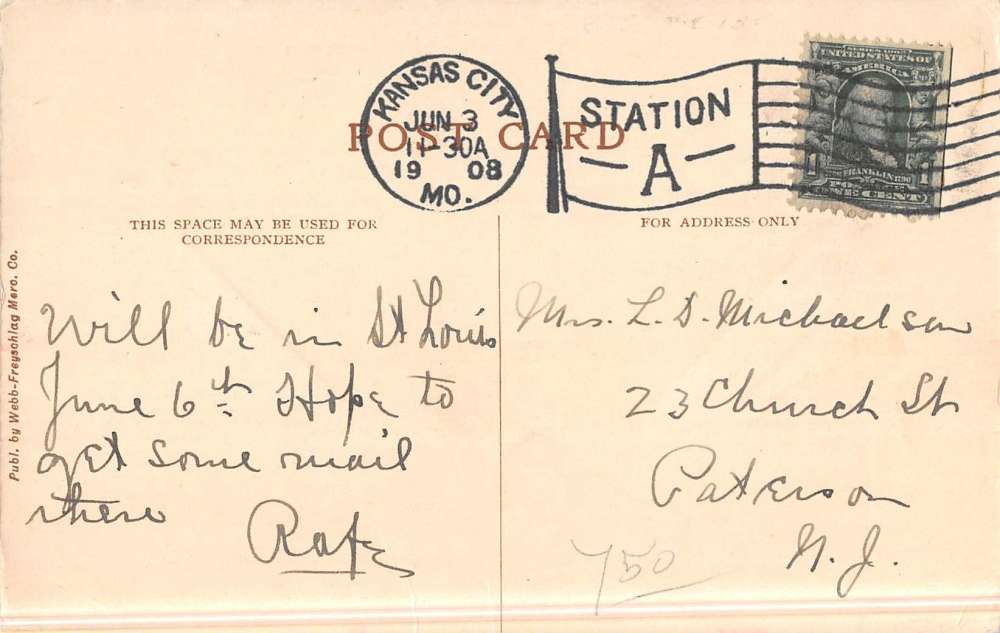 KANSAS CITY
JUN 3
11-30A
1908
MO.
STATION
A
SERIES 1902
UNITED STATES OF
AMERICA
FRANKLIN
ONE CENT
POST CARD
THIS SPACE MAY BE USED FOR
CORRESPONDENCE
FOR ADDRESS ONLY
Publ. by Webb-Freyschlag Merc. Co.
Will be in St Louis
June 6th Hope to
get some mail
there
Rafe
Mrs. L. D. Michaelson
23 Church St
Paterson
N. J.
750